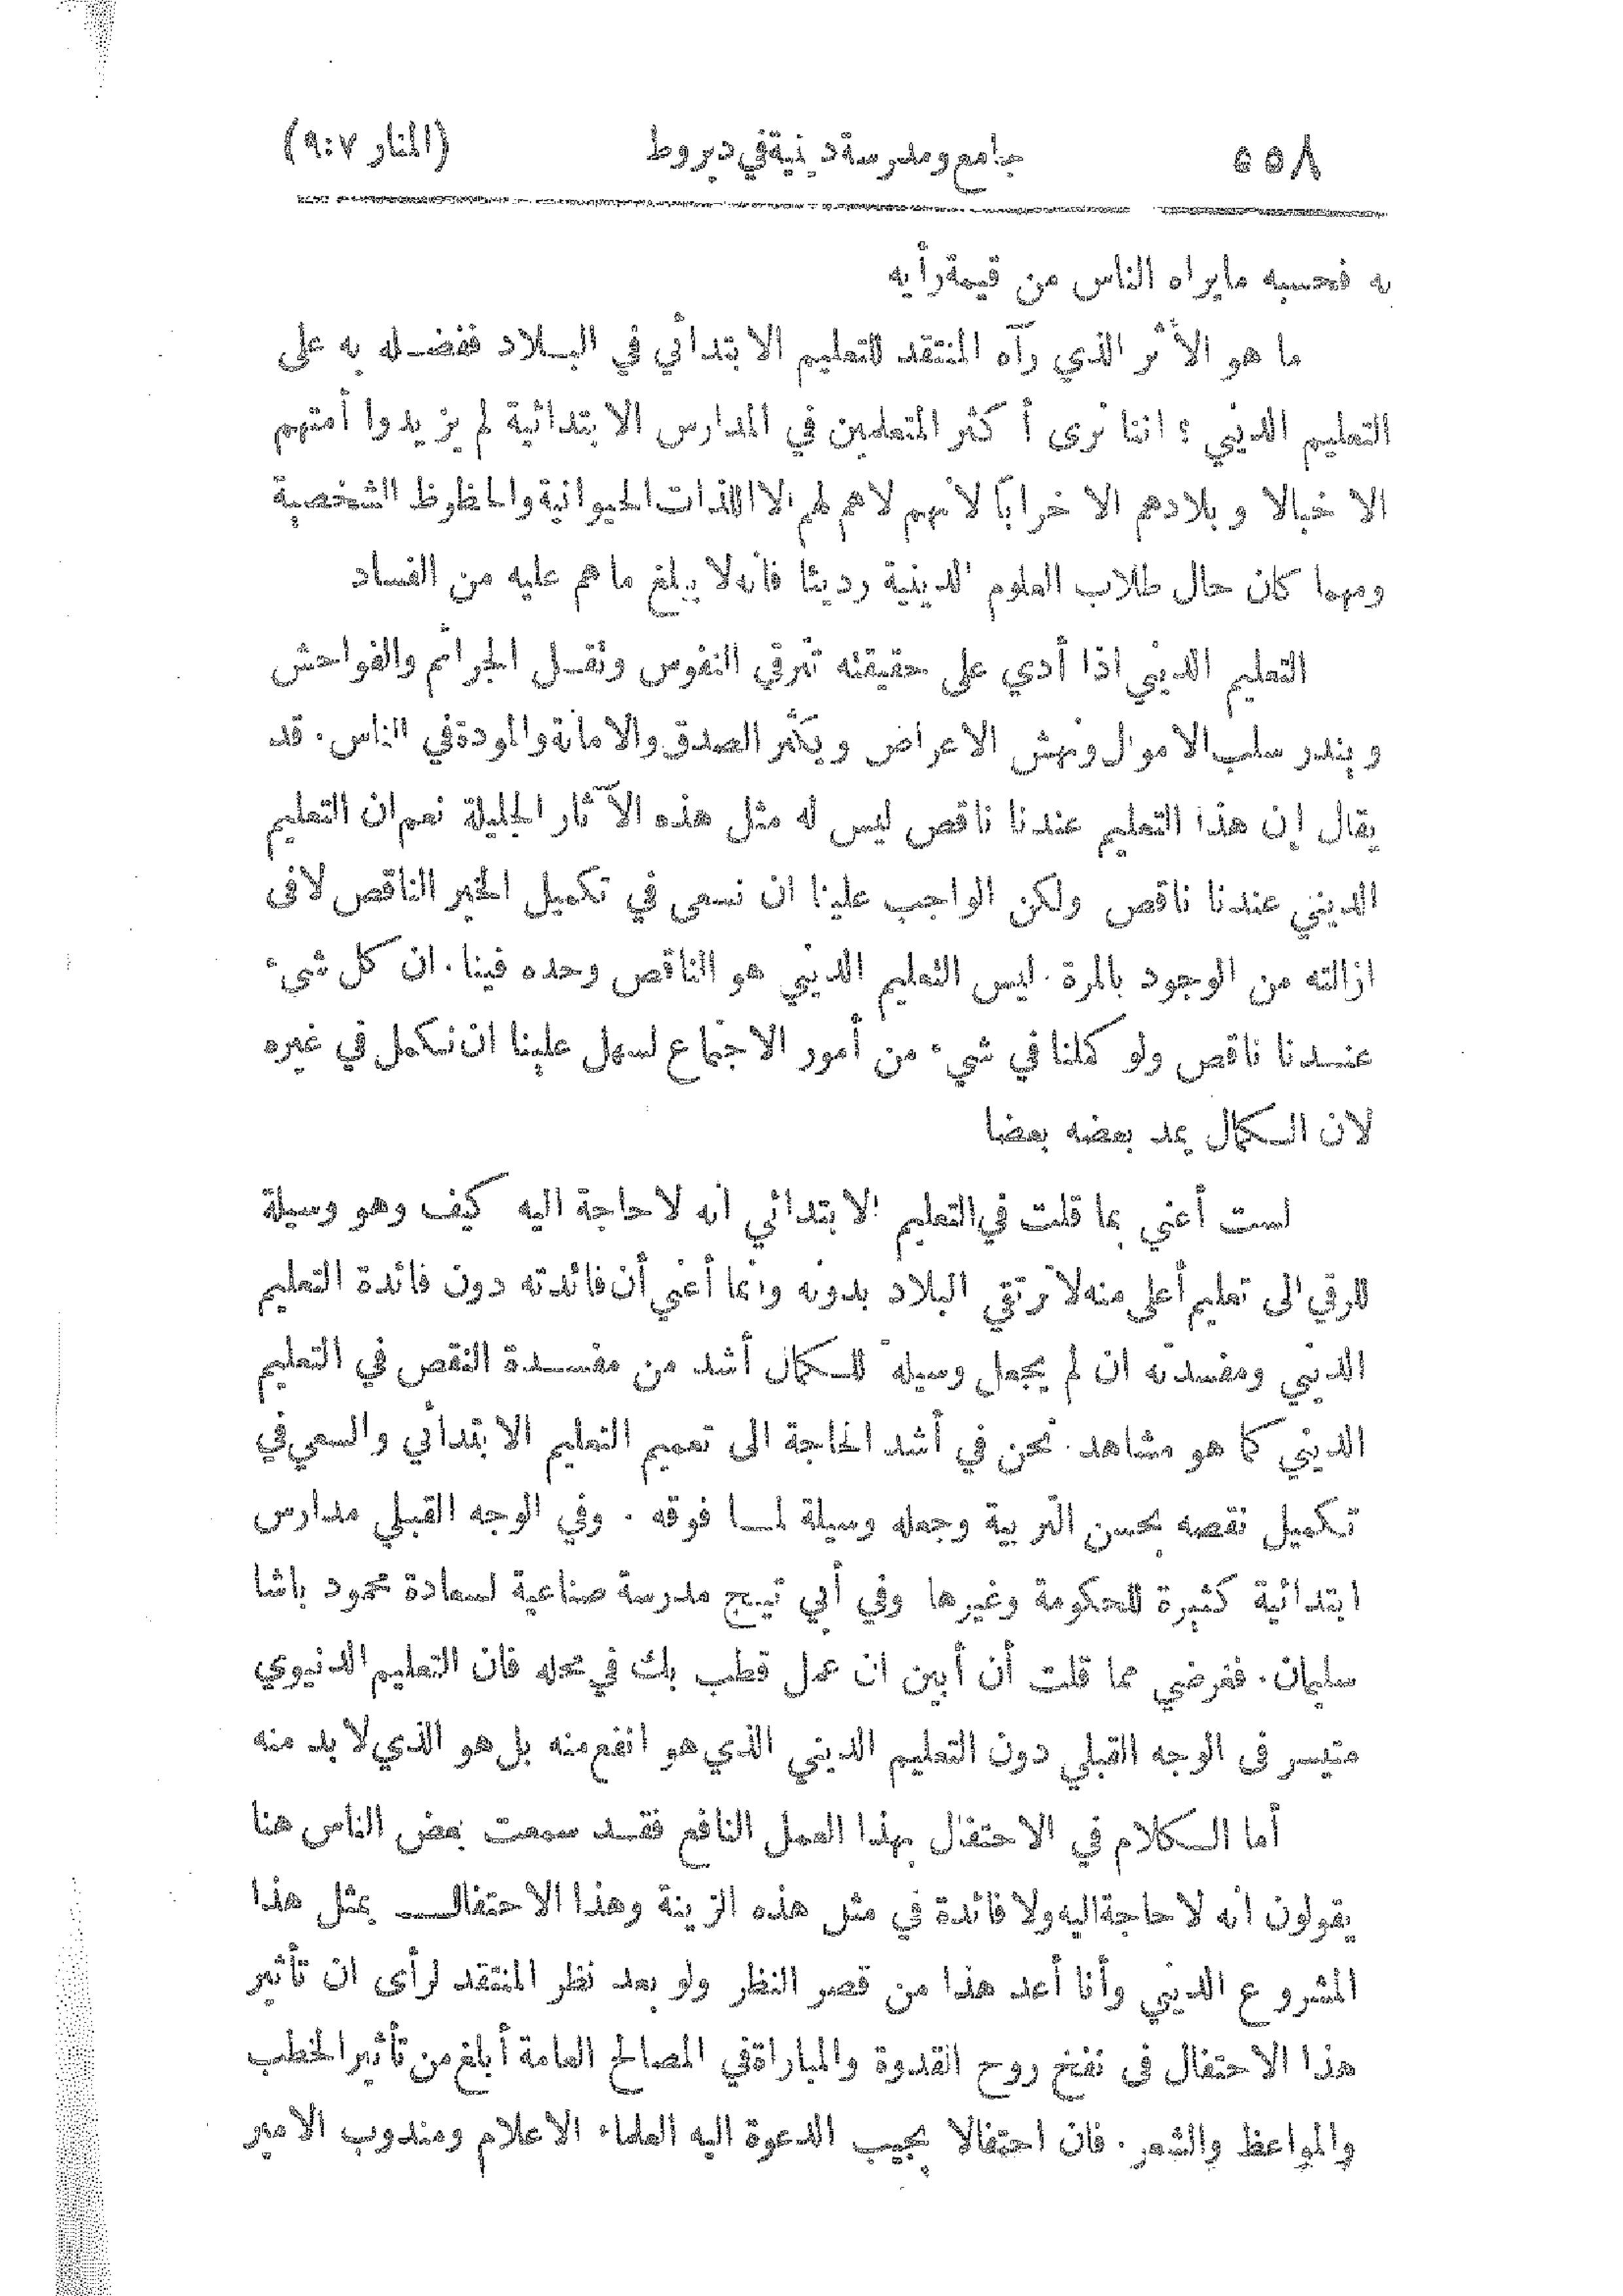 ٥٥٨ جامع ومدرسة دينية في ديروط (المنار ٩:٧)
به فحسبه ما يراه الناس من قيمة رأيه
ما هو الأثر الذي رآه المنتقد للتعليم الابتدائي في البلاد ففضله به على
التعليم الديني ؟ اننا نرى أكثر المتعلمين في المدارس الابتدائية لم يزيدوا أمتهم
الا خبالا وبلادهم الا خرابًا لأنهم لا هم لهم الا اللذات الحيوانية والحظوظ الشخصية
ومهما كان حال طلاب العلوم الدينية رديئا فانه لا يبلغ ما هم عليه من الفساد
التعليم الديني اذا أدي على حقيقته تترقى النفوس وتقل الجرائم والفواحش
ويندر سلب الاموال ونهش الاعراض ويكثر الصدق والامانة والمودة في الناس . قد
يقال إن هذا التعليم عندنا ناقص ليس له مثل هذه الآثار الجليلة نعم ان التعليم
الديني عندنا ناقص ولكن الواجب علينا ان نسعى في تكميل الخير الناقص لا فى
ازالته من الوجود بالمرة . ليس التعليم الديني هو الناقص وحده فينا . ان كل شيء
عندنا ناقص ولو كملنا في شيء من أمور الاجتماع لسهل علينا ان نكمل في غيره
لان الكمال يمد بعضه بعضا
لست أعني بما قلت في التعليم الابتدائي أنه لا حاجة اليه كيف وهو وسيلة
للرقي الى تعليم أعلى منه لا ترتقي البلاد بدونه وانما أعني أن فائدته دون فائدة التعليم
الديني ومفسدته ان لم يجعل وسيلة للكمال أشد من مفسدة النقص في التعليم
الديني كما هو مشاهد . نحن في أشد الحاجة الى تعميم التعليم الابتدائي والسعي في
تكميل نقصه بحسن التربية وجعله وسيلة لما فوقه . وفي الوجه القبلي مدارس
ابتدائية كثيرة للحكومة وغيرها وفي أبي تيج مدرسة صناعية لسعادة محمود باشا
سليمان . فغرضي مما قلت أن أبين ان عمل قطب بك في محله فان التعليم الدنيوي
متيسر فى الوجه القبلي دون التعليم الديني الذي هو انفع منه بل هو الذي لا بد منه
أما الكلام في الاحتفال بهذا العمل النافع فقد سمعت بعض الناس هنا
يقولون انه لا حاجة اليه ولا فائدة في مثل هذه الزينة وهذا الاحتفال بمثل هذا
المشروع الديني وأنا أعد هذا من قصر النظر ولو بعد نظر المنتقد لرأى ان تأثير
هذا الاحتفال فى نفخ روح القدوة والمباراة في المصالح العامة أبلغ من تأثير الخطب
والمواعظ والشعر . فان احتفالا يجيب الدعوة اليه العلماء الاعلام ومندوب الامير